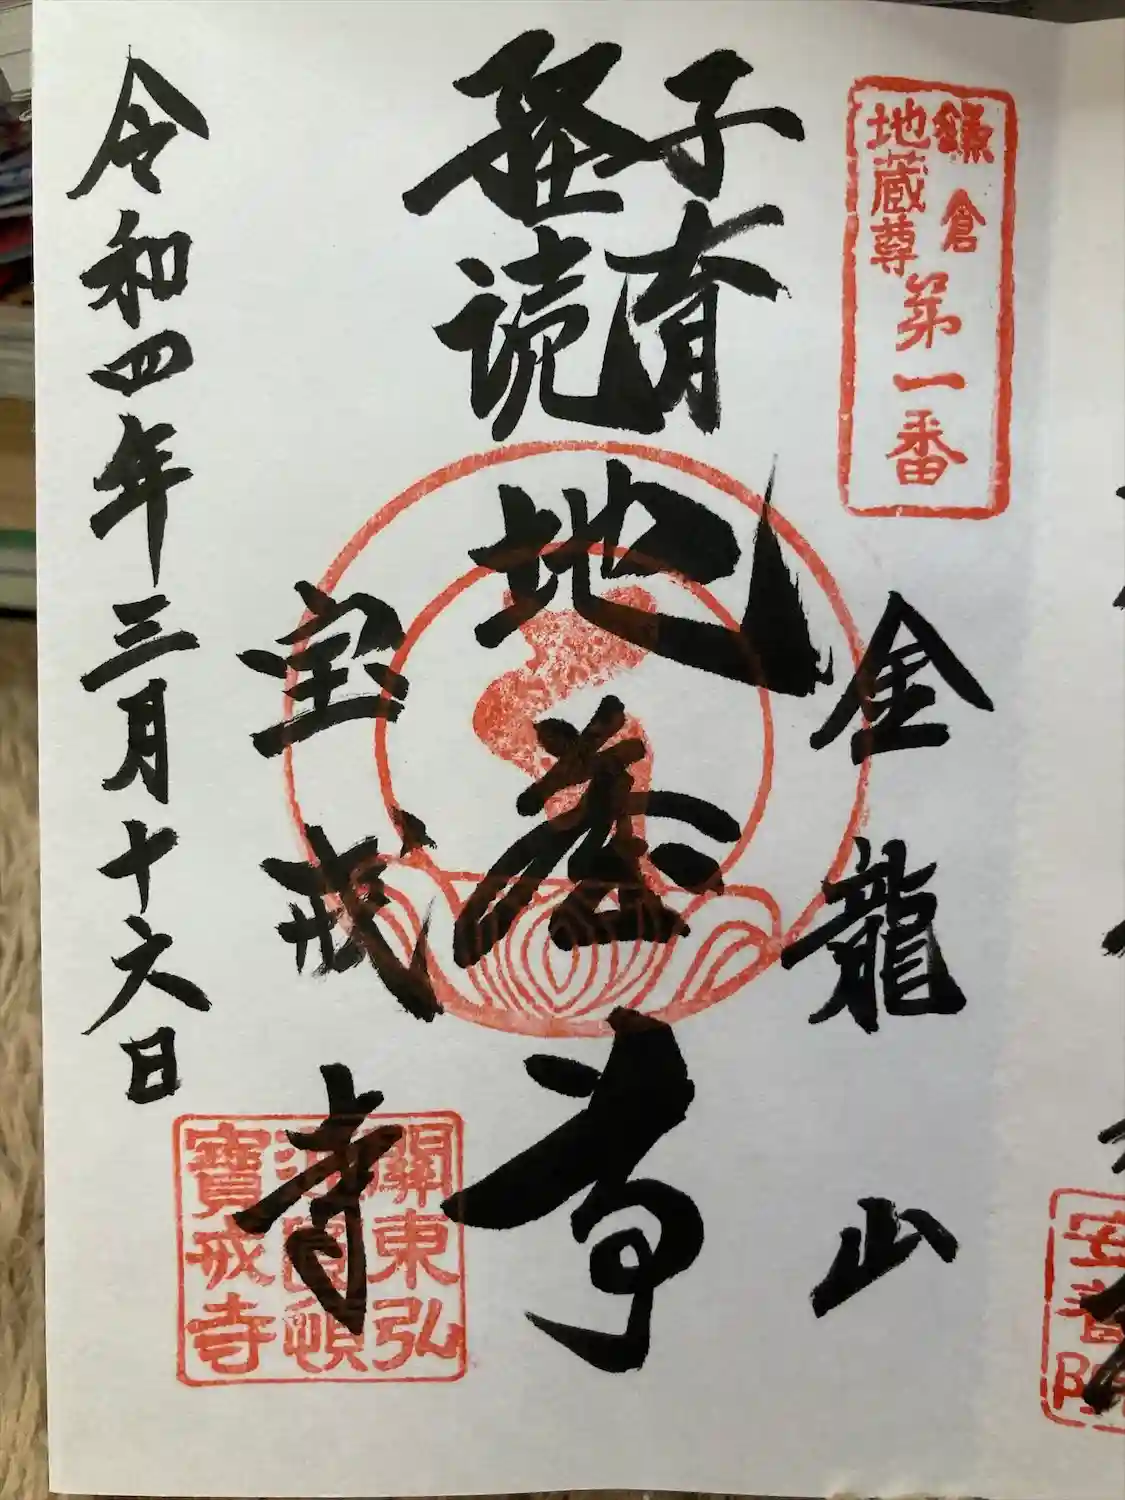 鎌倉
地蔵尊
第一番
金龍山
子育
経読
地蔵尊
宝戒寺
関東弘
寶戒寺
令和四年三月十六日